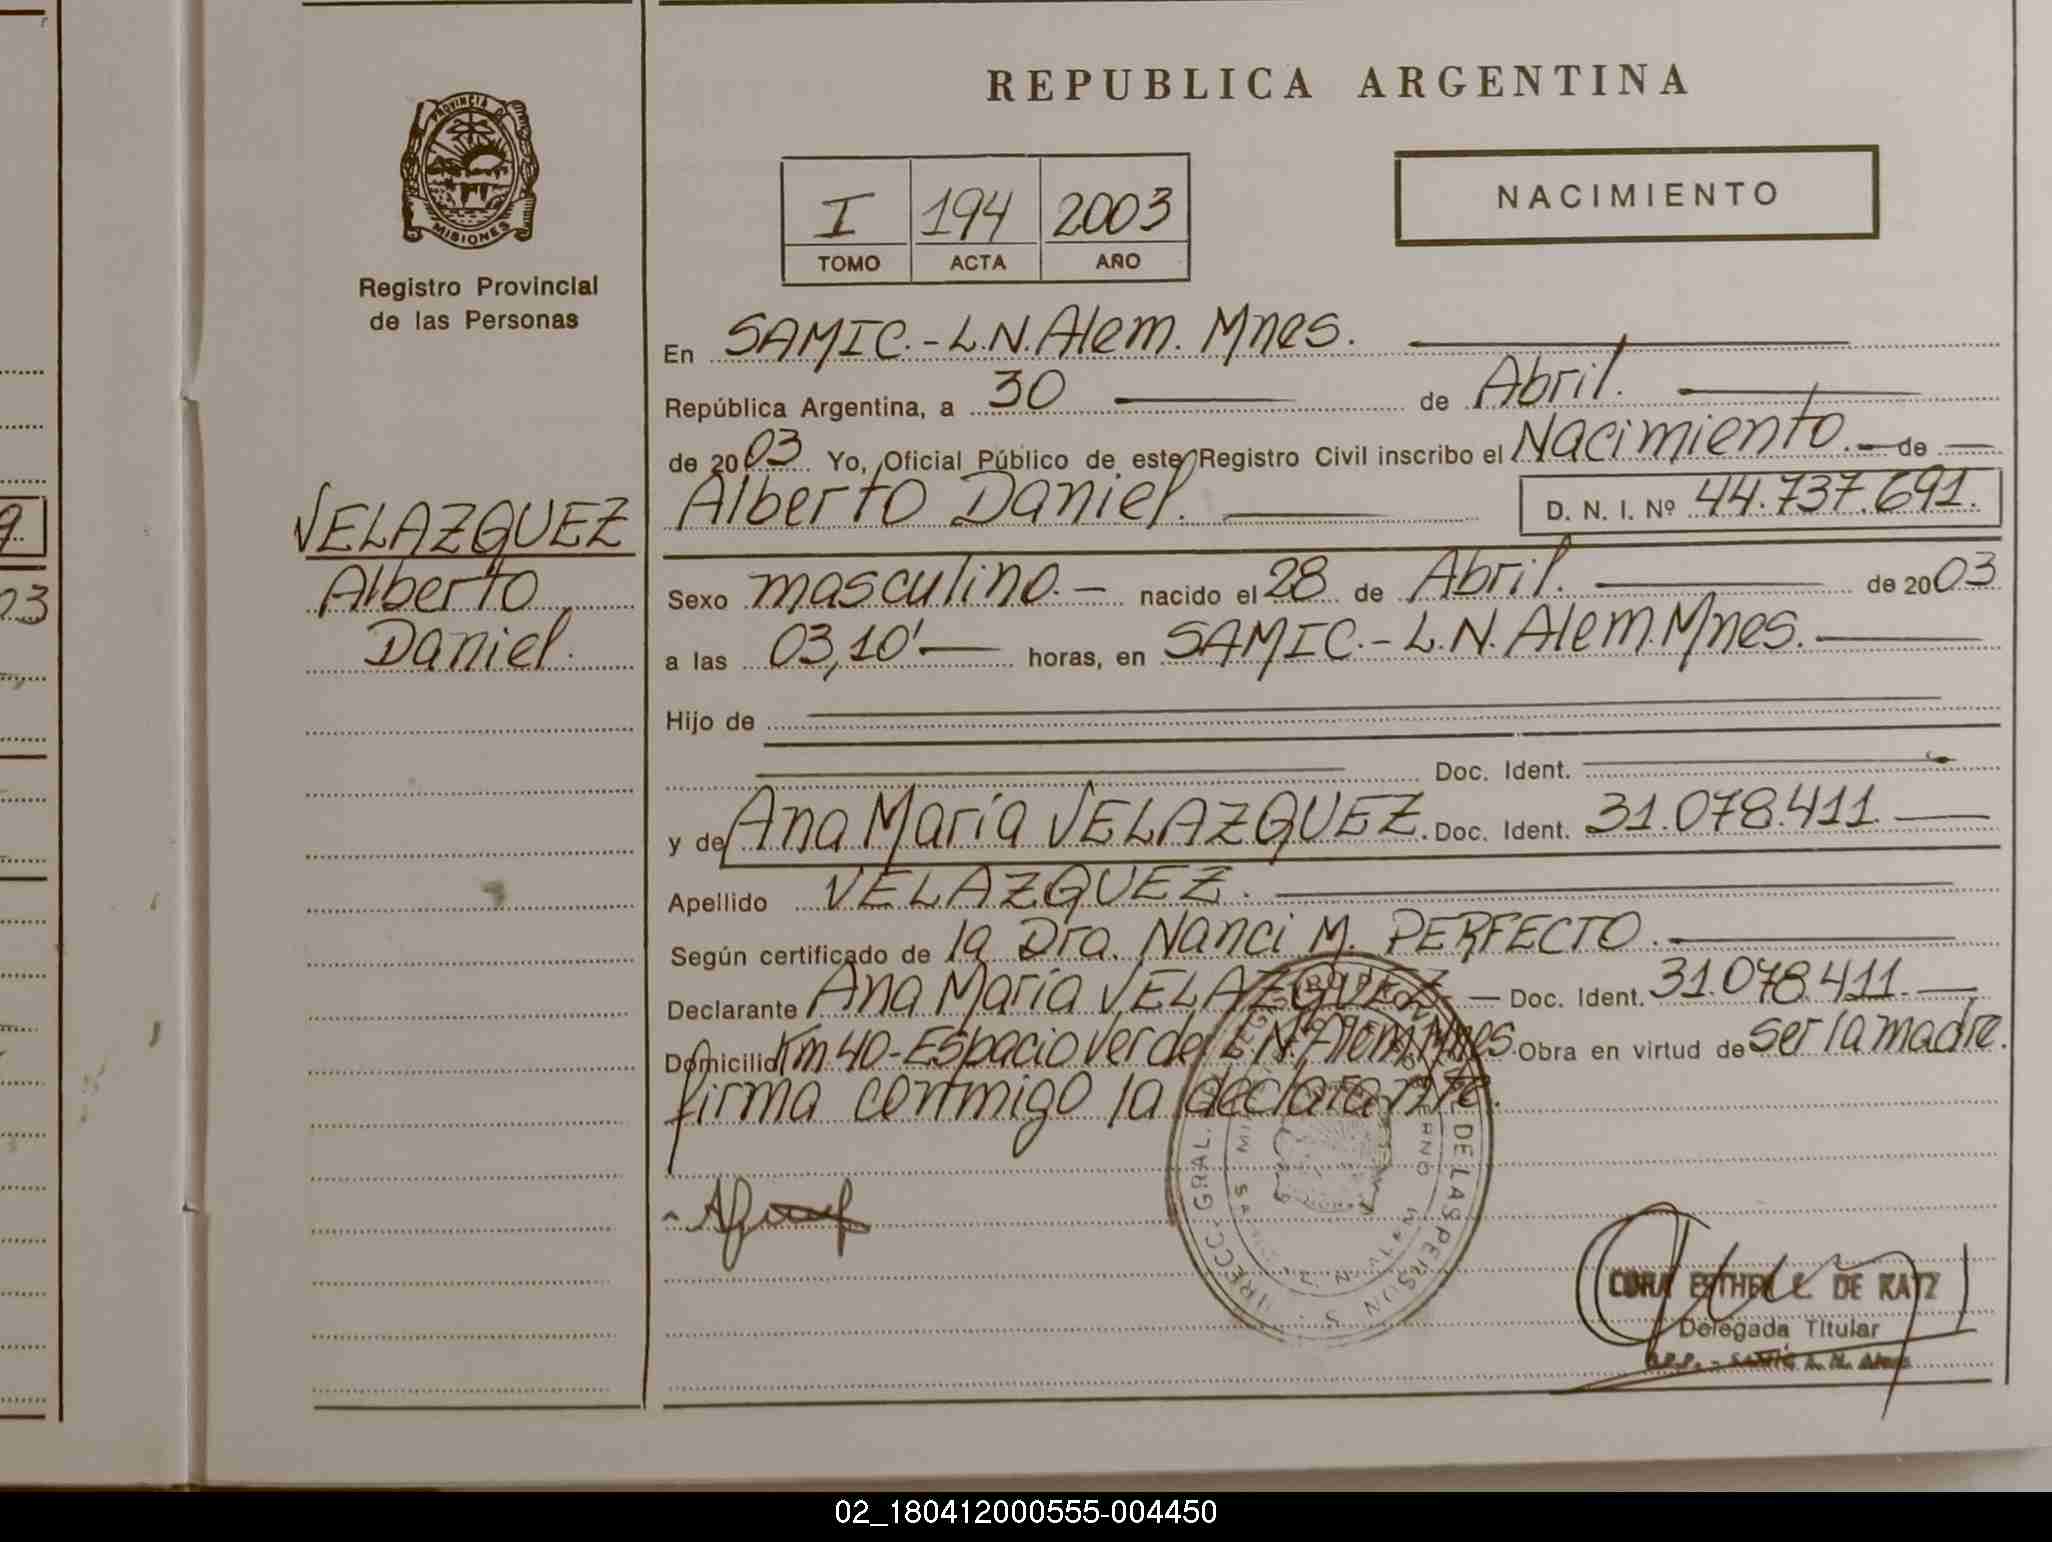 REPUBLICA ARGENTINA
PROVINCIA DE
MISIONES
Registro Provincial
de las Personas
I 194 2003
TOMO ACTA AÑO
NACIMIENTO
En SAMIC.- L.N. Alem. Mnes.
República Argentina, a 30 de Abril.
de 2003 Yo, Oficial Público de este Registro Civil inscribo el Nacimiento.- de
Alberto Daniel. D. N. I. Nº 44.737.691.
VELAZQUEZ
Alberto
Daniel.
Sexo masculino.- nacido el 28 de Abril. de 2003
a las 03,10' horas, en SAMIC.- L.N. Alem. Mnes.
Hijo de
Doc. Ident.
y de Ana María VELAZQUEZ. Doc. Ident. 31.078.411.
Apellido VELAZQUEZ.
Según certificado de la Dra. Nanci M. PERFECTO.
Declarante Ana María VELAZQUEZ - Doc. Ident. 31.078.411.
Domicilio Km 40-Espacio Verde L.N. Alem Mnes. Obra en virtud de ser la madre.
firma conmigo la declarante.
GRAL. DE LAS PERSON S
CORA ESTHER DE KATZ
Delegada Titular
9
03
02_180412000555-004450